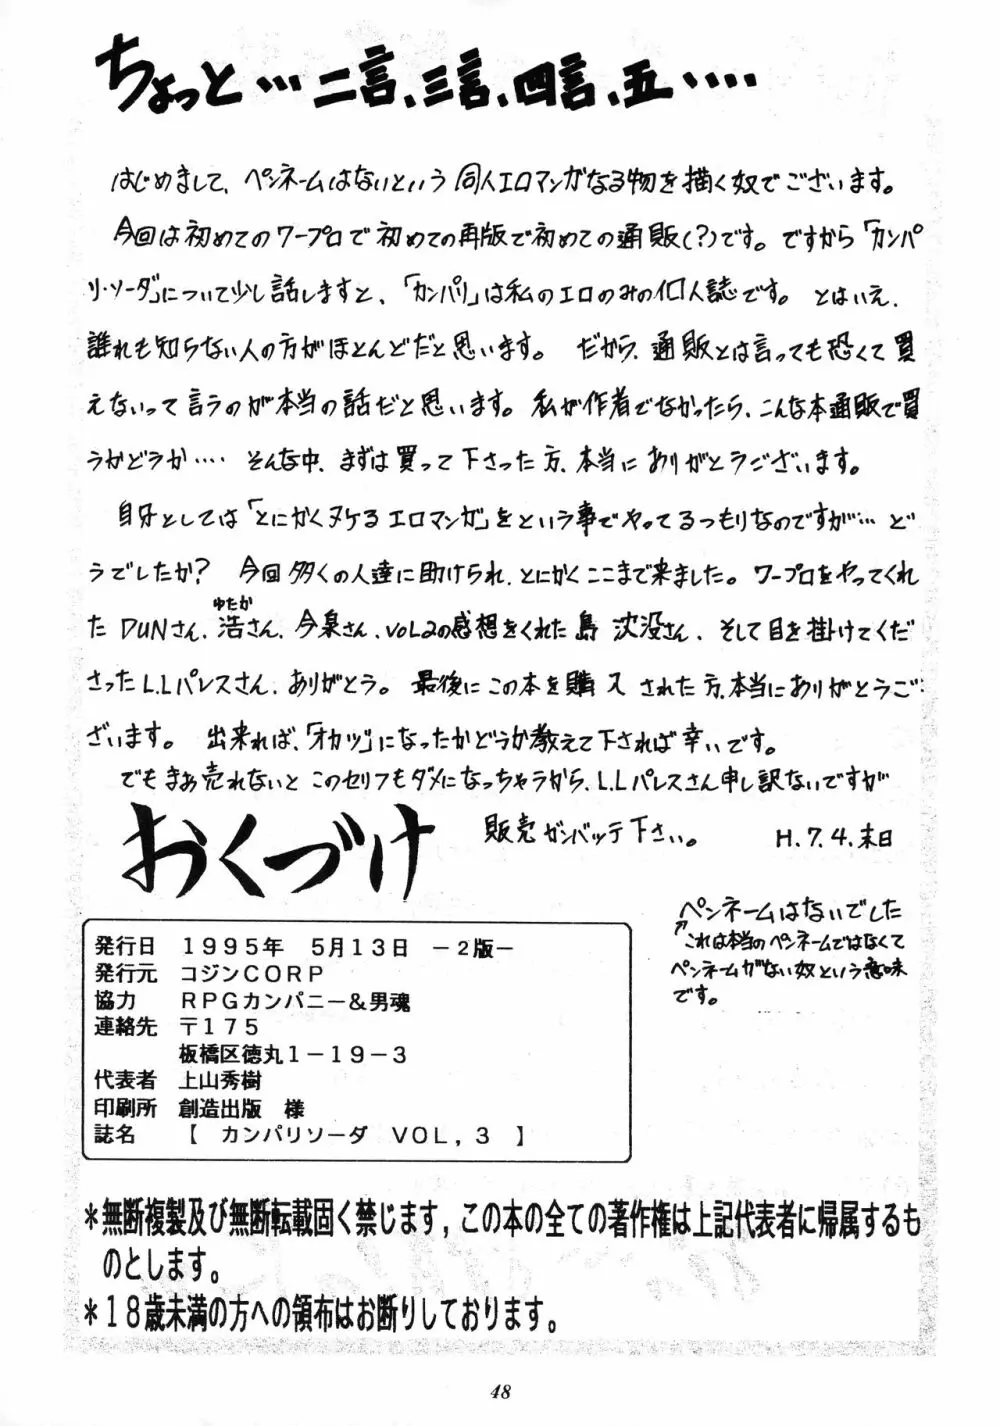 ちょっと…二言、三言、四言、五‥‥
はじめまして、ペンネームはないという同人エロマンガなる物を描く奴でございます。
今回は初めてのワープロで初めての再版で初めての通販(?)です。ですから「カンパ
リ・ソーダ」について少し話しますと、「カンパリ」は私のエロのみの個人誌です。とはいえ、
誰れも知らない人の方がほとんどだと思います。だから、通販とは言っても恐くて買
えないって言うのが本当の話だと思います。私が作者でなかったら、こんな本通販で買
うかどうか‥‥そんな中、まずは買って下さった方、本当にありがとうございます。
自分としては「とにかくヌケるエロマンガ」をという事でやってるつもりなのですが…ど
うでしたか?今回多くの人達に助けられ、とにかくここまで来ました。ワープロをやってくれ
ゆたか
たDUNさん、浩さん、今泉さん、VOL2の感想をくれた島沈没さん、そして目を掛けてくだ
さったL.Lパレスさん、ありがとう。最後にこの本を購入された方、本当にありがとうご
ざいます。出来れば、「オカヅ」になったかどうか教えて下されば幸いです。
でもまぁ売れないとこのセリフもダメになっちゃうから、L.Lパレスさん申し訳ないですが
販売ガンバッテ下さい。 H.7.4.末日
おくづけ
ペンネームはないでした
これは本当のペンネームではなくて
ペンネームがない奴という意味
です。
発行日 1995年 5月13日 －2版－
発行元 コジンCORP
協力 RPGカンパニー&男魂
連絡先 〒175
板橋区徳丸1－19－3
代表者 上山秀樹
印刷所 創造出版 様
誌名 【 カンパリソーダ VOL,3 】
*無断複製及び無断転載固く禁じます,この本の全ての著作権は上記代表者に帰属するも
のとします。
*18歳未満の方への領布はお断りしております。
48